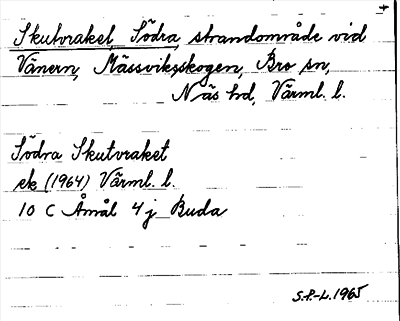 Skutvraket, Södra, strandområde vid
Vänern, Mässviksskogen, Bro sn,
Näs hd, Värml. l.
Södra Skutvraket
ek (1964) Värml. l.
10 C Åmål 4 j Buda
S.P.-L. 1965